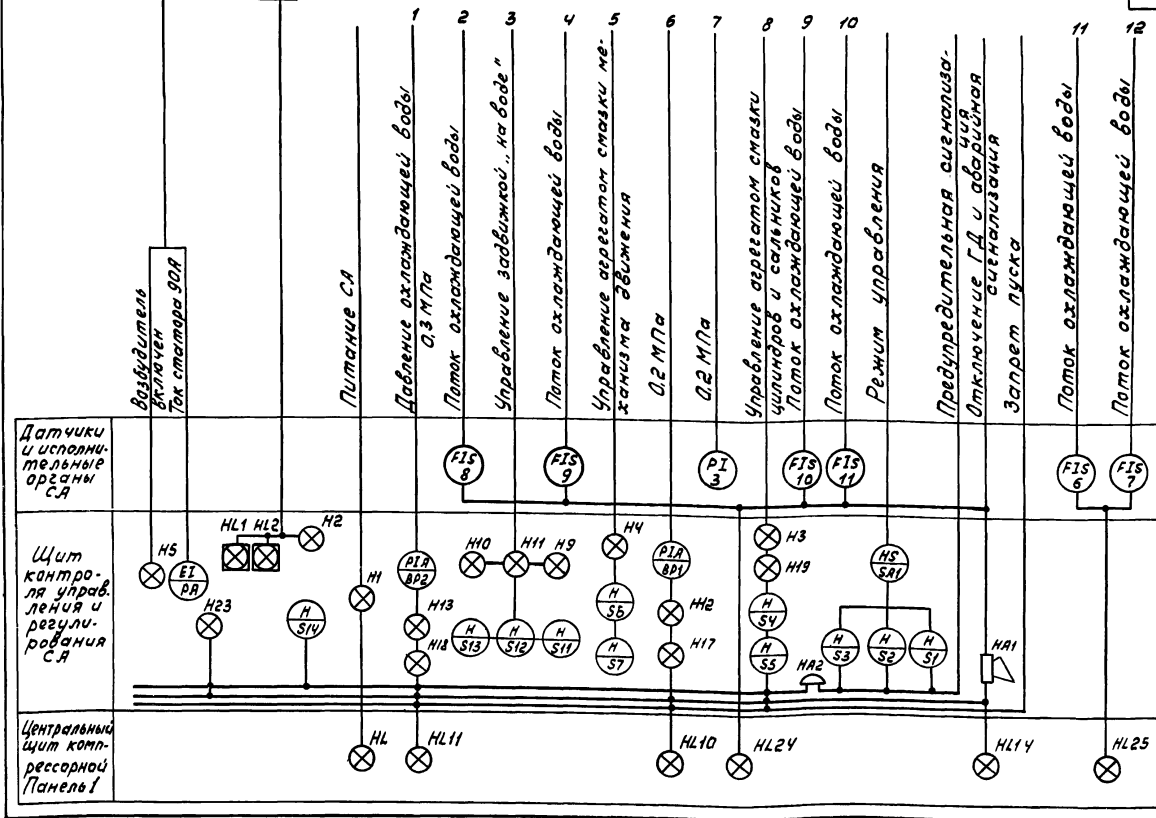 1 2 3 4 5 6 7 8 9 10 11 12
Возбудитель
включен
Ток статора 90А
Питание СА
Давление охлаждающей воды
0,3 МПа
Поток охлаждающей воды
Управление задвижкой „на воде"
Поток охлаждающей воды
Управление агрегатом смазки ме-
ханизма движения
0.2 МПа
0.2 МПа
Управление агрегатом смазки
цилиндров и сальников
Поток охлаждающей воды
Поток охлаждающей воды
Режим управления
Предупредительная сигнализа-
ция
Отключение ГД и аварийная
сигнализация
Запрет пуска
Поток охлаждающей воды
Поток охлаждающей воды
Датчики
и исполни-
тельные
органы
СА
FIS 8
FIS 9
PI 3
FIS 10
FIS 11
FIS 6
FIS 7
Щит
контро-
ля управ-
ления и
регули-
рования
СА
H5
EI PA
HL1 HL2 H2
H23
H S14
H1
PIA BP2
H13
H18
H10 H11 H9
H S13
H S12
H S11
H4
H S6
H S7
PIA BP1
H12
H17
H3
H19
H S4
H S5
HA2
HS SA1
H S3
H S2
H S1
HA1
Центральный
щит комп-
рессорной
Панель 1
HL
HL11
HL10
HL24
HL14
HL25